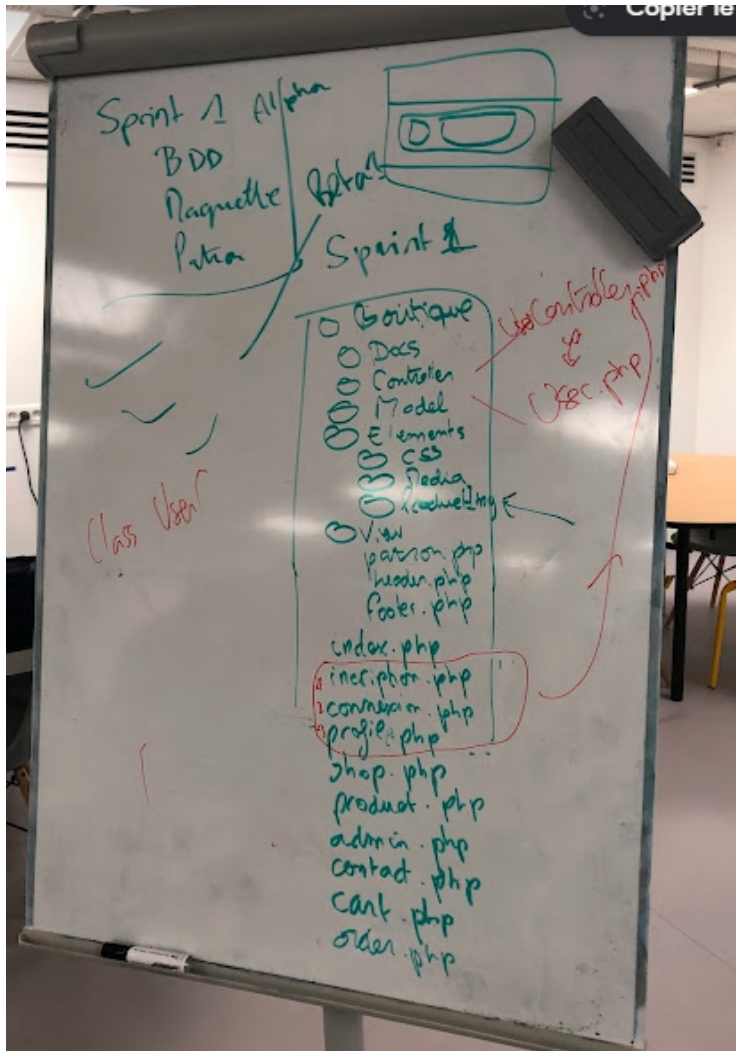 Copier le
Sprint 1 Alpha
BDD
Maquette
Patron
Beta
Sprint 1
Boutique
Docs
Controller
Model
Elements
CSS
Media
View
patron.php
header.php
footer.php
index.php
1 incription.php
2 connexion.php
3 profile.php
shop.php
product.php
admin.php
contact.php
cart.php
order.php
UserController.php
User.php
Class User